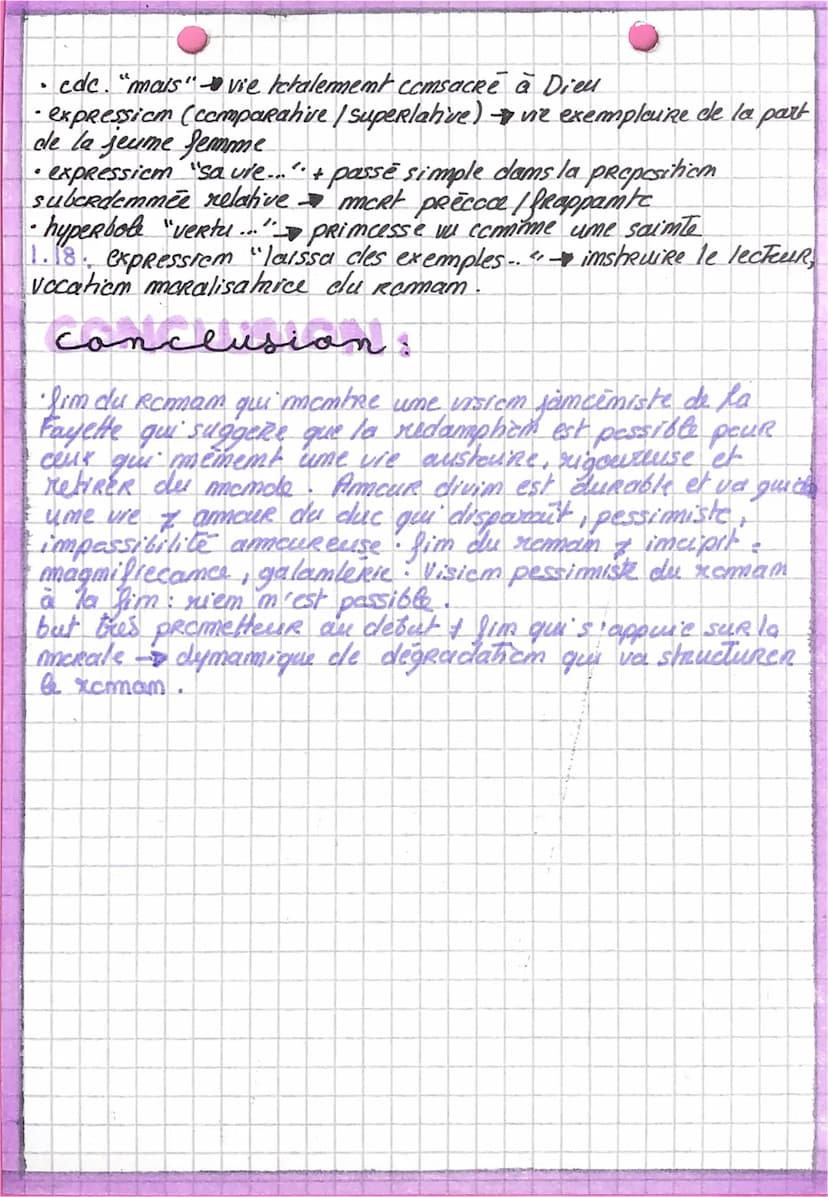 • cdc. "mais" → vie totalement consacré à Dieu
• expression (comparative / superlative) → vie exemplaire de la part
de la jeune femme
• expression "sa vie..." + passé simple dans la proposition
subordonnée relative → mort précoce / frappante
• hyperbole "vertu ..." → princesse vu comme une sainte
l.18: expression "laissa des exemples..." → instruire le lecteur,
vocation moralisatrice du roman.
CONCLUSION :
conclusion :
• fin du roman qui montre une vision jancéniste de la
Fayette qui suggère que la rédamption est possible pour
ceux qui mènent une vie austaire, rigoureuse et
retirer du monde. Amour divin est durable et va guider
une vie ≠ amour du duc qui disparaît, pessimiste,
impossibilité amoureuse. fin du roman ≠ incipit =
magnifiecance, galanterie. Vision pessimiste du roman
à la fin : rien n'est possible.
but très prometteur au début ≠ fin qui s'appuie sur la
morale → dynamique de dégradation qui va structurer
le roman.